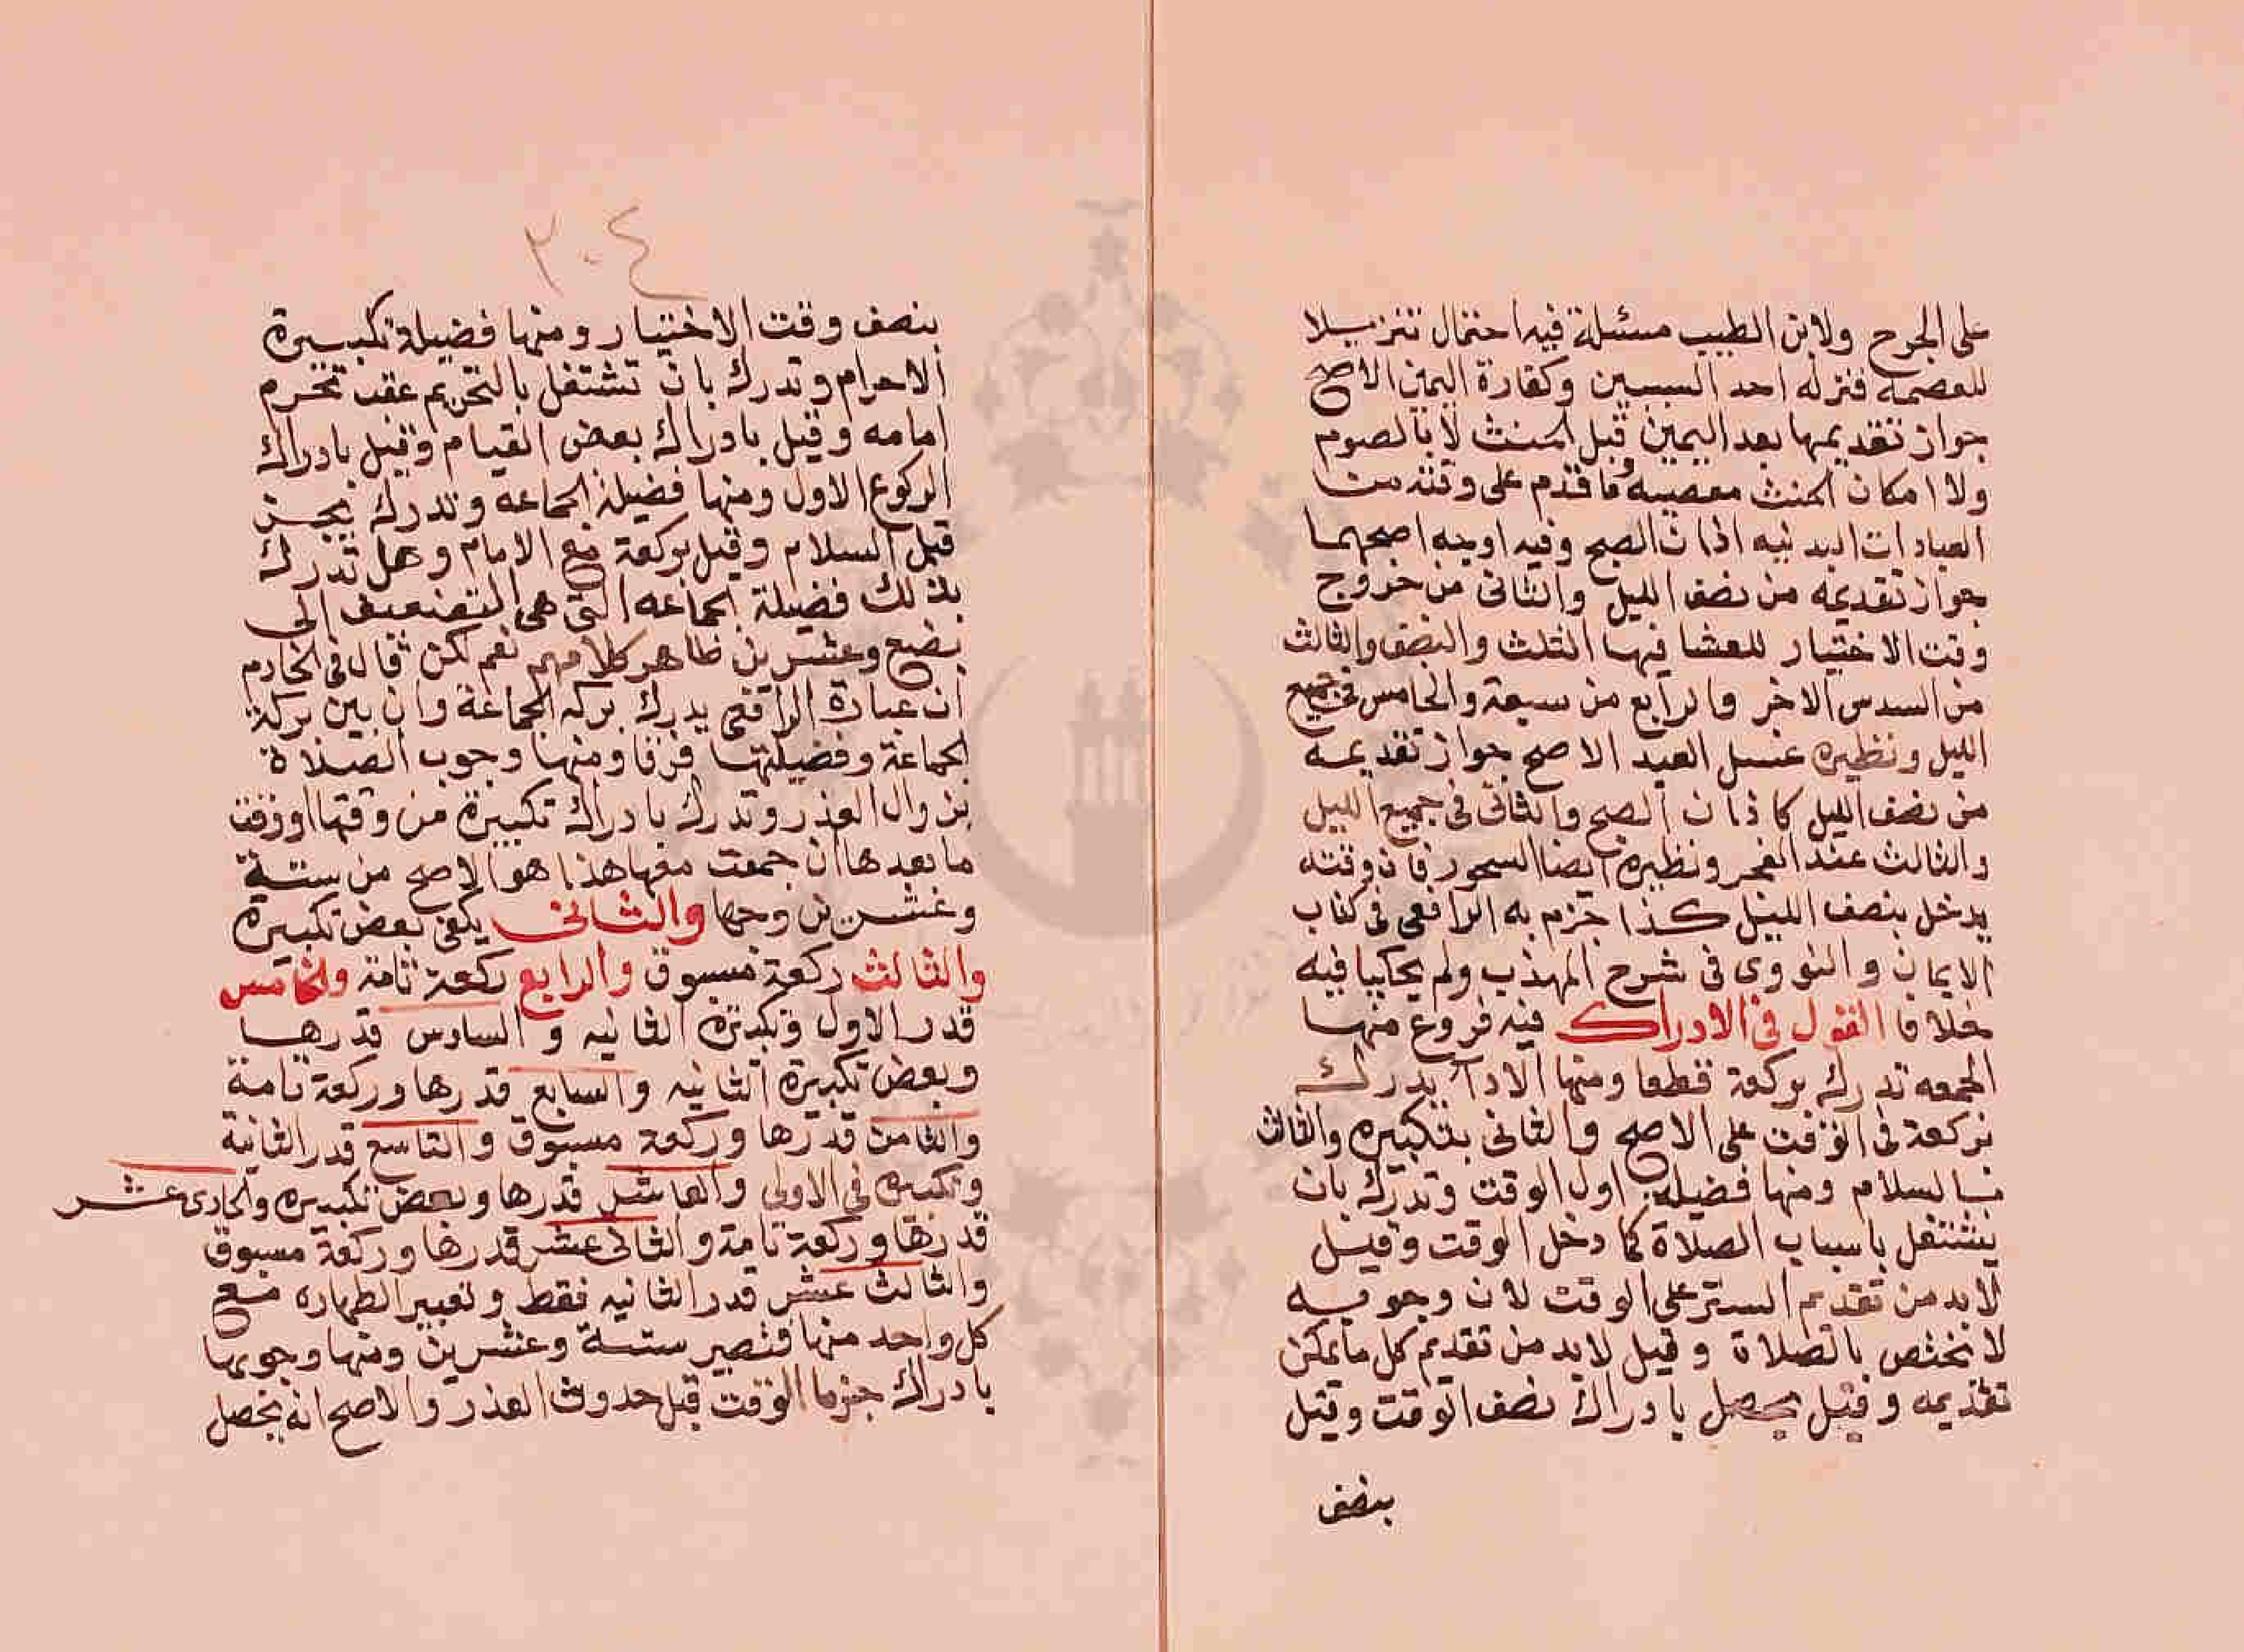 على الجرح ولابن الطيب مسئلة فيه احتمال تنزيلا
للعصمة منزله احد السببين وكفارة اليمين الاصح
جواز تقديمها بعد اليمين قبل الحنث لا بالصوم
ولا امكان الحنث معصيه وما قدم على وقته من
العبادات البدنيه اذان الصبح وفيه اوجه اصحهما
جواز تقديمه من نصف الليل والثانى من خروج
وقت الاختيار للعشا فيها الثلث والنصف والثالث
من السدس الاخر والرابع من سبعة والخامس فى جميع
الليل ونظيره غسل العيد الاصح جواز تقديمه
من نصف الليل كاذان الصبح والثانى فى جميع الليل
والثالث عند الفجر ونظيره ايضا السحور فان وقته
يدخل بنصف الليل كذا جزم به الرافعى فى كتاب
الايمان والنووى فى شرح المهذب ولم يحكيا فيه
خلافا القول فى الادراك فيه فروع منها
الجمعه تدرك بركعة قطعا ومنها الادآء يدرك
بركعة فى الوقت على الاصح والثانى بتكبيره والثالث
بالسلام ومنها فضيلة اول الوقت وتدرك بان
يشتغل باسباب الصلاة كما دخل الوقت وقيل
لابد من تقديم الستر على الوقت لان وجوبه
لا يختص بالصلاة وقيل لابد من تقديم كل ما يمكن
تقديمه وقيل يحصل بادراك نصف الوقت وقيل
بنصف
٢٠٤
بنصف وقت الاختيار ومنها فضيلة تكبيرة
الاحرام وتدرك بان تشتغل بالتحريم عقب تحرم
امامه وقيل بادراك بعض القيام وقيل بادراك
الركوع الاول ومنها فضيلة الجماعه وتدرك بجزء
قبل السلام وقيل بركعة مع الامام وهل تدرك
بذلك فضيلة الجماعه التى هى التضعيف الى
بضع وعشرين ظاهر كلامهم نعم لكن قال فى الخادم
ان عبارة الرافعى يدرك بركه الجماعة وان بين بركة
الجماعة وفضيلتها فرقا ومنها وجوب الصلاة
بزوال العذر وتدرك بادراك تكبيرة من وقتها او وقت
ما بعدها ان جمعت معها هذا هو الاصح من ستة
وعشرين وجها والثانى يكفى بعض تكبيرة
والثالث ركعة مسبوق والرابع ركعة تامة والخامس
قدر الاولى وتكبيرة الثانيه والسادس قدرها
وبعض تكبيرة الثانيه والسابع قدرها وركعة تامة
والثامن قدرها وركعة مسبوق والتاسع قدر الثانية
وتكبيره فى الاولى والعاشر قدرها وبعض تكبيره والحادى عشر
قدرها وركعة تامة والثانى عشر قدرها وركعة مسبوق
والثالث عشر قدر الثانيه فقط وتعبير الطهاره مع
كل واحد منها فتصير ستة وعشرين ومنها وجوبها
بادراك جزما الوقت قبل حدوث العذر والاصح انه يحصل